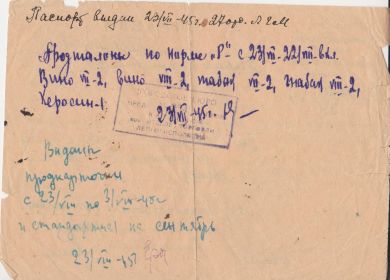 Паспорт выдан 23/VII-45г. 27 отд. ЛГМ
Продталоны по норме "Р" с 23/VII-22/VIII вкл.
Вино VII-2, вино VIII-2, табак VII-2, табак VIII-2,
Керосин-1,
23/VII-45г.
Выданы
продкарточки
с 23/VII по 3/VIII-45г
и стандартная на сентябрь
23/VII-45г